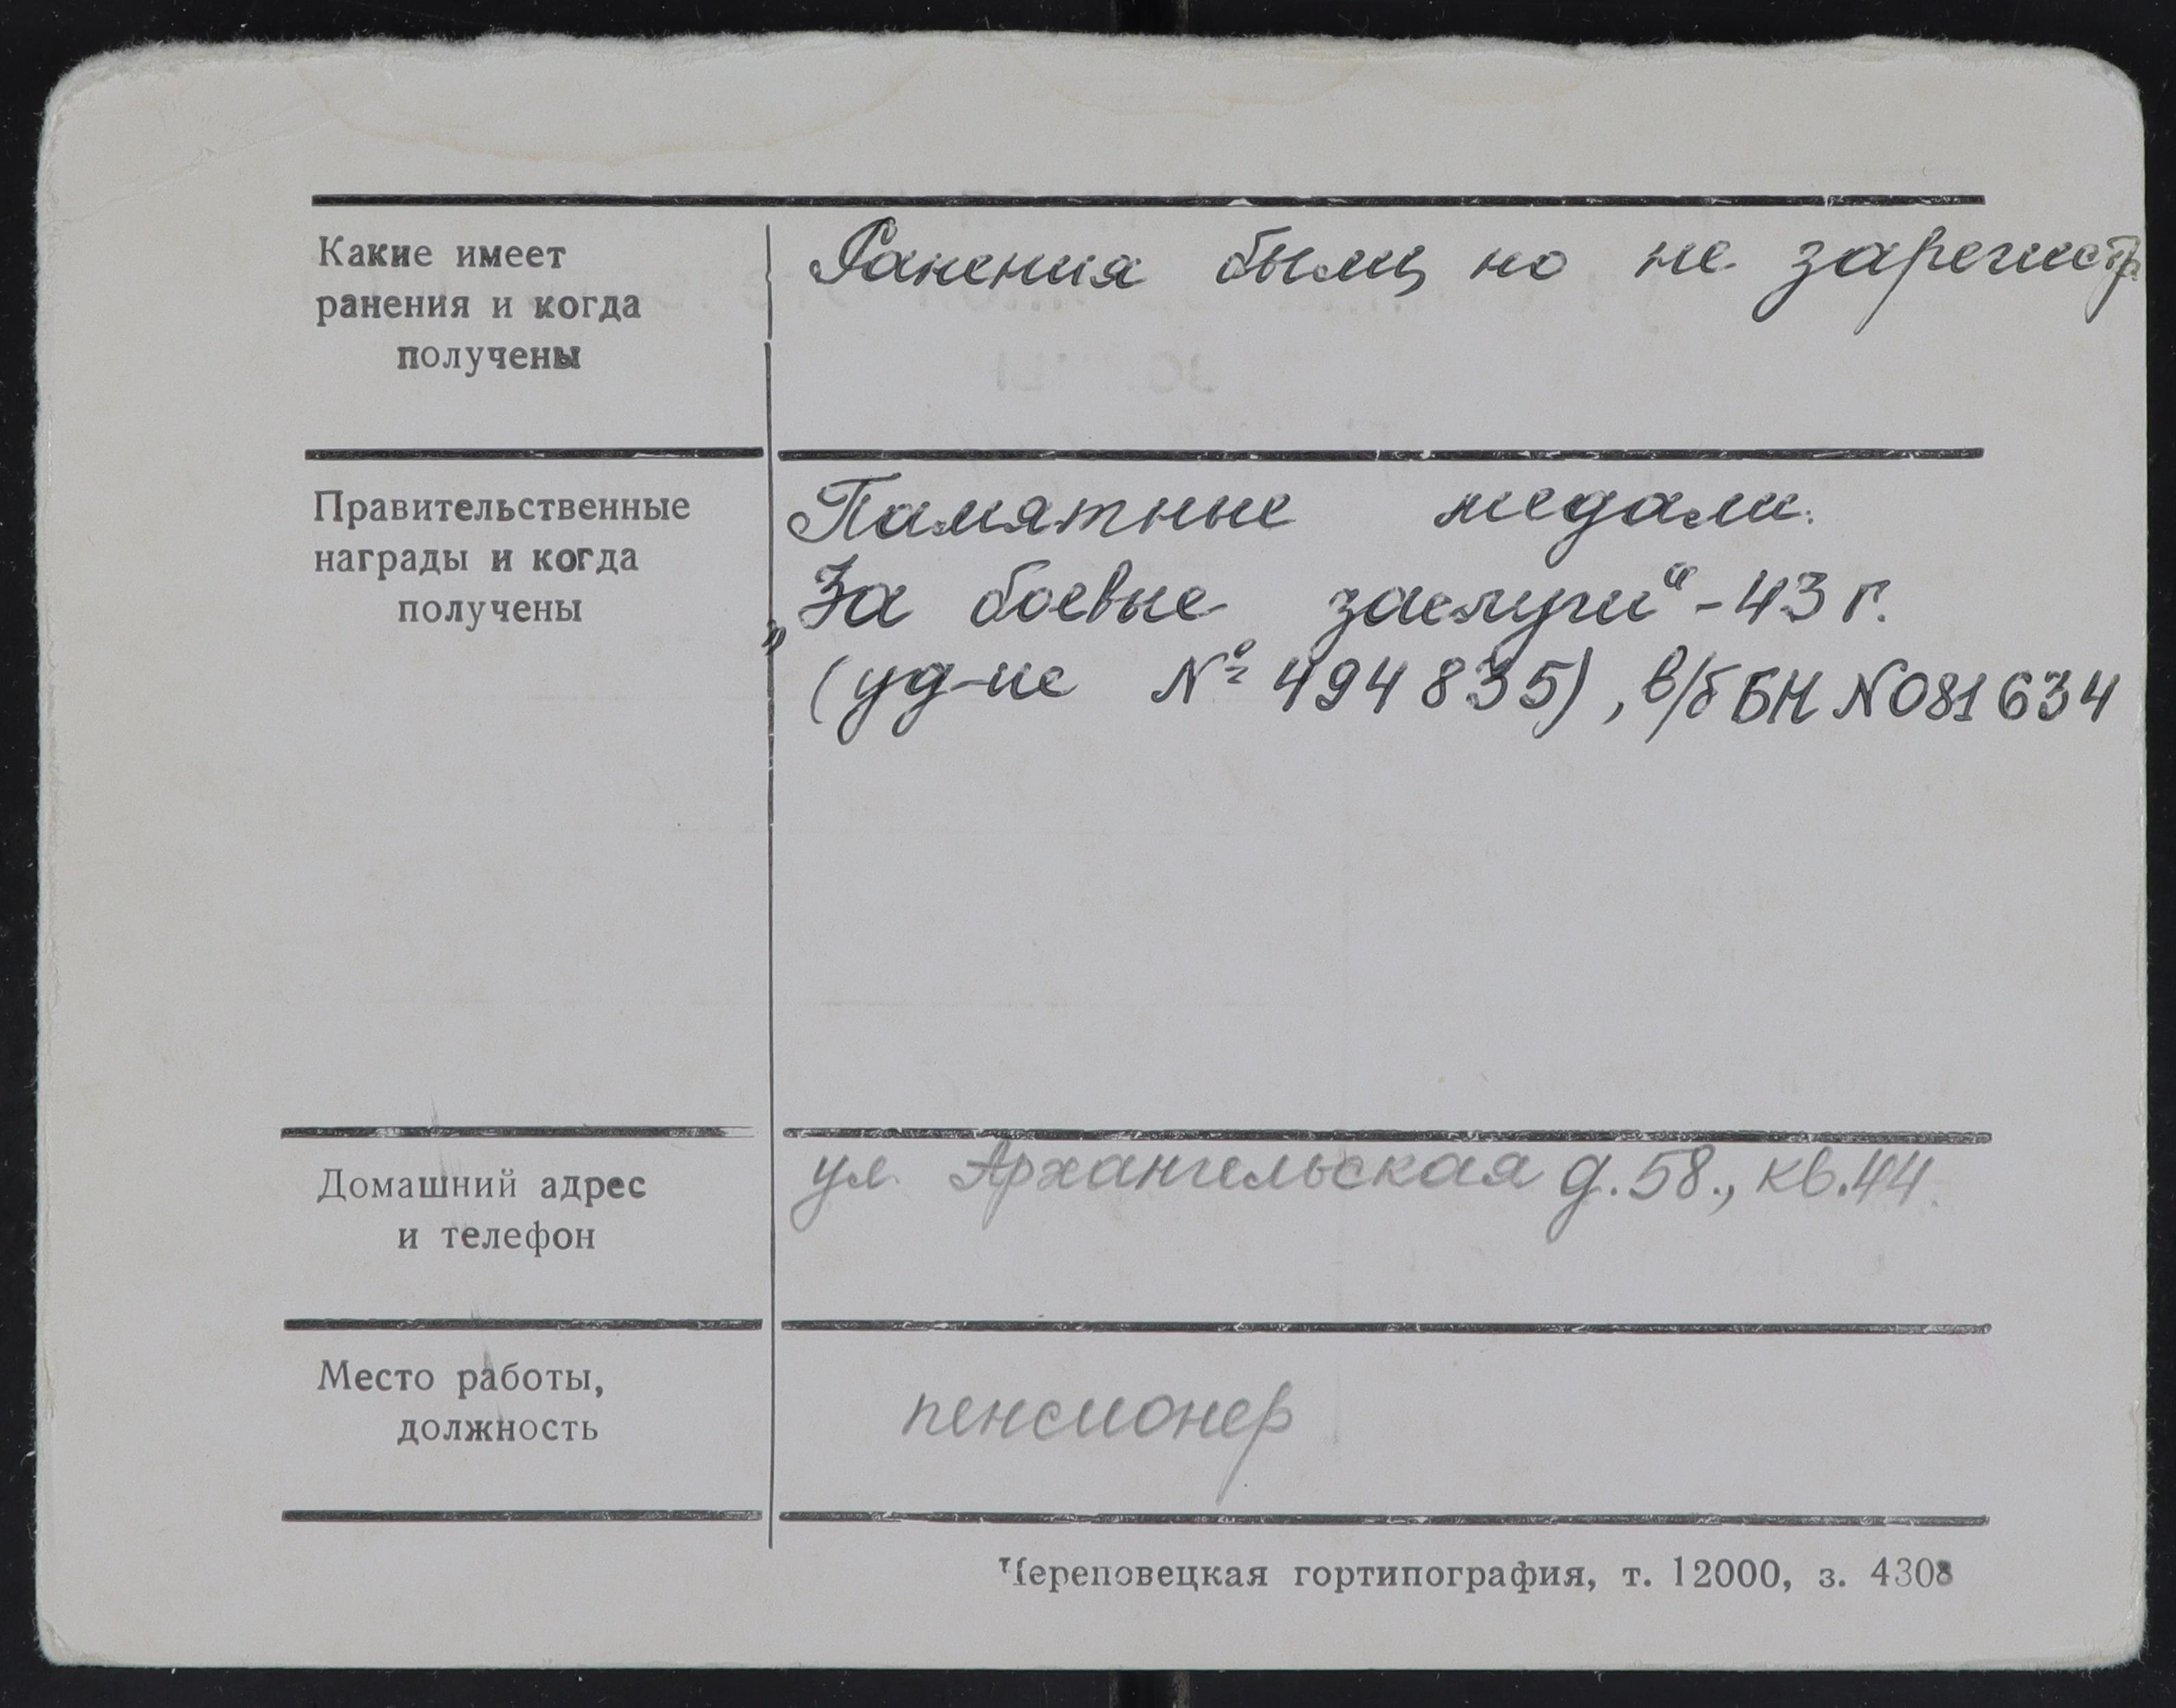 Какие имеет
ранения и когда
получены
Ранения были, но не зарегистр.
Правительственные
награды и когда
получены
Памятные медали.
„За боевые заслуги“ - 43 г.
(уд-ие № 494835), в/б БН N 081634
Домашний адрес
и телефон
ул. Архангельская д. 58., кв. 44.
Место работы,
должность
пенсионер
Череповецкая гортипография, т. 12000, з. 4308